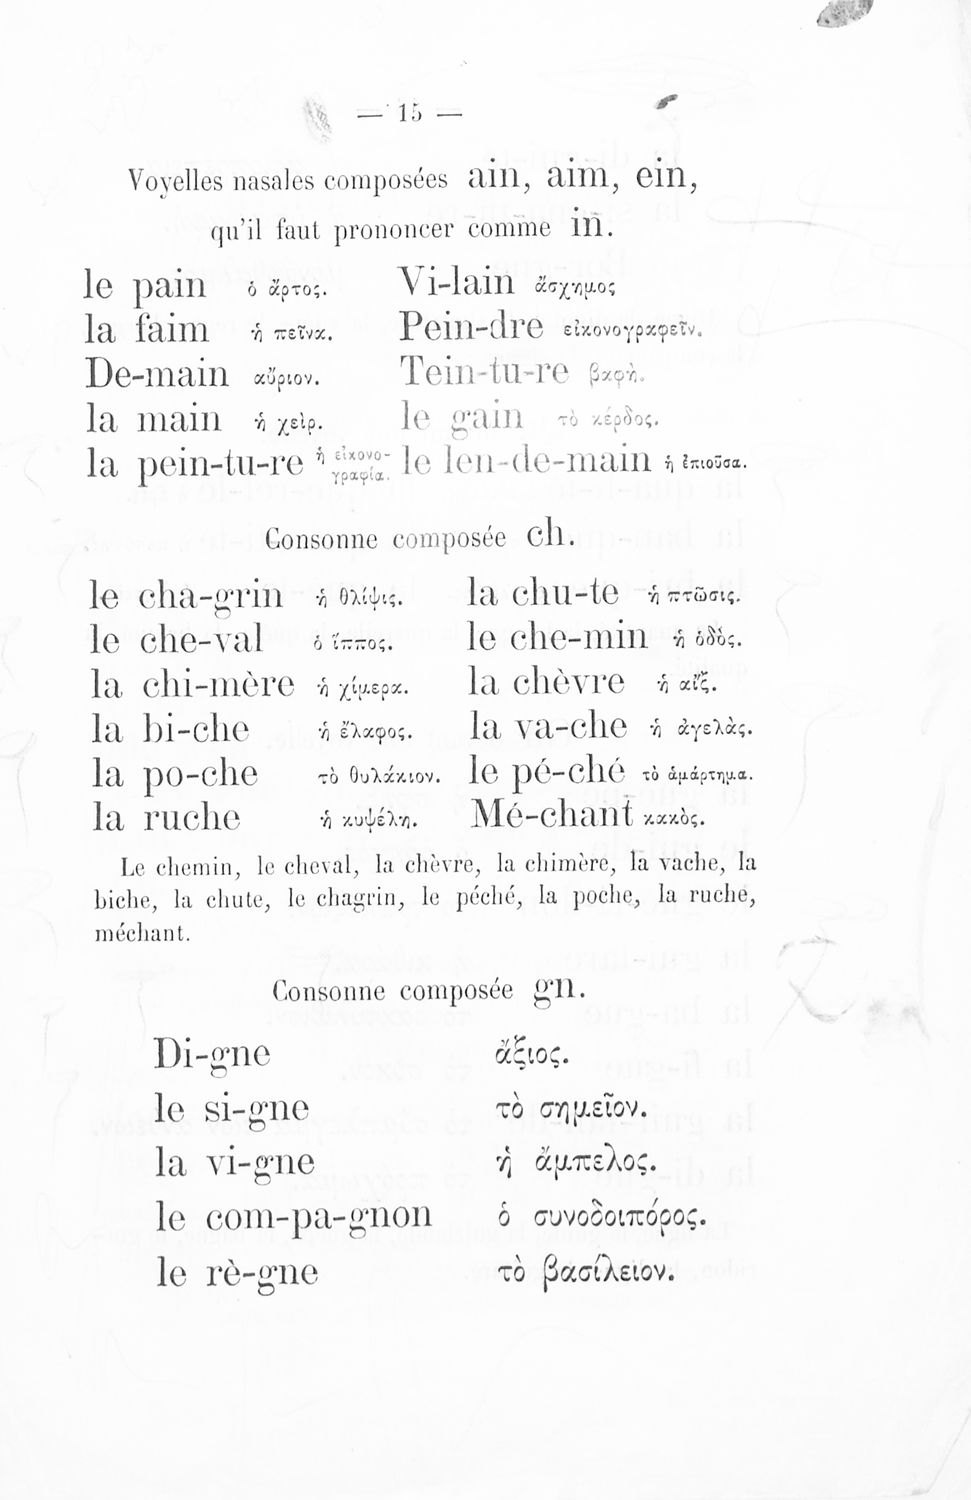 — 15 —
Voyelles nasales composées ain, aim, ein,
qu'il faut prononcer comme in.
le pain ὁ ἄρτος. Vi-lain ἄσχημος
la faim ἡ πεῖνα. Pein-dre εἰκονογραφεῖν.
De-main αὔριον. Tein-tu-re βαφὴ.
la main ἡ χεὶρ. le gain τὸ κέρδος.
la pein-tu-re ἡ εἰκονο-γραφία. le len-de-main ἡ ἐπιοῦσα.
Consonne composée ch.
le cha-grin ἡ θλίψις. la chu-te ἡ πτῶσις.
le che-val ὁ ἵππος. le che-min ἡ ὁδὸς.
la chi-mère ἡ χίμερα. la chèvre ἡ αἴξ.
la bi-che ἡ ἔλαφος. la va-che ἡ ἀγελὰς.
la po-che τὸ θυλάκιον. le pé-ché τὸ ἁμάρτημα.
la ruche ἡ κυψέλη. Mé-chant κακὸς.
Le chemin, le cheval, la chèvre, la chimère, la vache, la
biche, la chute, le chagrin, le péché, la poche, la ruche,
méchant.
Consonne composée gn.
Di-gne ἄξιος.
le si-gne τὸ σημεῖον.
la vi-gne ἡ ἄμπελος.
le com-pa-gnon ὁ συνοδοιπόρος.
le rè-gne τὸ βασίλειον.